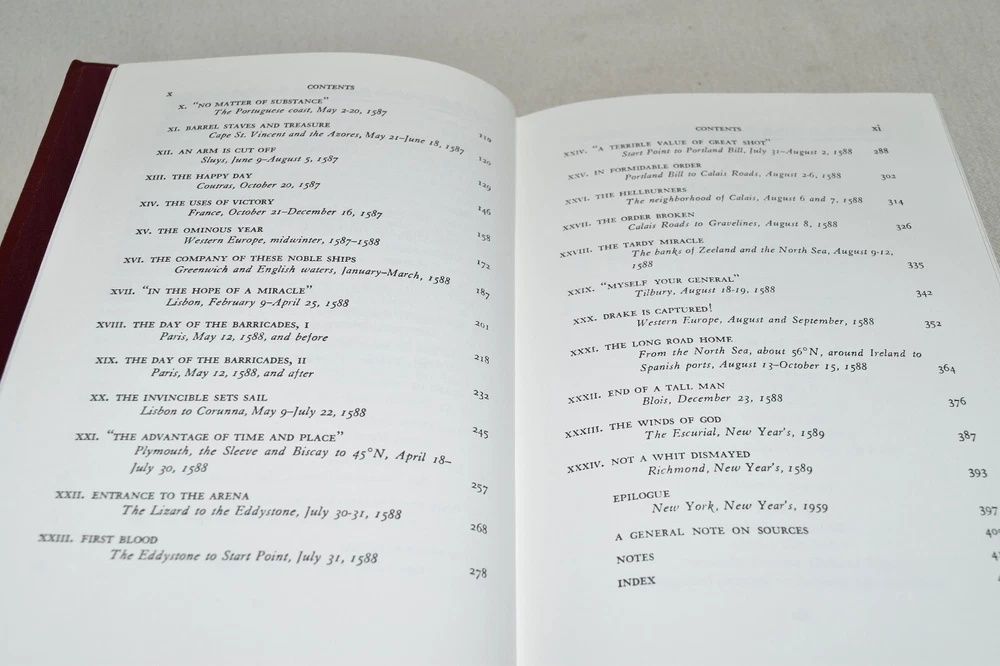 x
CONTENTS
X. "NO MATTER OF SUBSTANCE"
The Portuguese coast, May 2-20, 1587 110
XI. BARREL STAVES AND TREASURE
Cape St. Vincent and the Azores, May 21–June 18, 1587 120
XII. AN ARM IS CUT OFF
Sluys, June 9–August 5, 1587 129
XIII. THE HAPPY DAY
Coutras, October 20, 1587 146
XIV. THE USES OF VICTORY
France, October 21–December 16, 1587 158
XV. THE OMINOUS YEAR
Western Europe, midwinter, 1587–1588 172
XVI. THE COMPANY OF THESE NOBLE SHIPS
Greenwich and English waters, January–March, 1588 187
XVII. "IN THE HOPE OF A MIRACLE"
Lisbon, February 9–April 25, 1588 201
XVIII. THE DAY OF THE BARRICADES, I
Paris, May 12, 1588, and before 218
XIX. THE DAY OF THE BARRICADES, II
Paris, May 12, 1588, and after 232
XX. THE INVINCIBLE SETS SAIL
Lisbon to Corunna, May 9–July 22, 1588 245
XXI. "THE ADVANTAGE OF TIME AND PLACE"
Plymouth, the Sleeve and Biscay to 45°N, April 18–
July 30, 1588 257
XXII. ENTRANCE TO THE ARENA
The Lizard to the Eddystone, July 30-31, 1588 268
XXIII. FIRST BLOOD
The Eddystone to Start Point, July 31, 1588 278
CONTENTS
xi
XXIV. "A TERRIBLE VALUE OF GREAT SHOT"
Start Point to Portland Bill, July 31–August 2, 1588 288
XXV. IN FORMIDABLE ORDER
Portland Bill to Calais Roads, August 2-6, 1588 302
XXVI. THE HELLBURNERS
The neighborhood of Calais, August 6 and 7, 1588 314
XXVII. THE ORDER BROKEN
Calais Roads to Gravelines, August 8, 1588 326
XXVIII. THE TARDY MIRACLE
The banks of Zeeland and the North Sea, August 9-12,
1588 335
XXIX. "MYSELF YOUR GENERAL"
Tilbury, August 18-19, 1588 342
XXX. DRAKE IS CAPTURED!
Western Europe, August and September, 1588 352
XXXI. THE LONG ROAD HOME
From the North Sea, about 56°N, around Ireland to
Spanish ports, August 13–October 15, 1588 364
XXXII. END OF A TALL MAN
Blois, December 23, 1588 376
XXXIII. THE WINDS OF GOD
The Escurial, New Year's, 1589 387
XXXIV. NOT A WHIT DISMAYED
Richmond, New Year's, 1589 393
EPILOGUE
New York, New Year's, 1959 397
A GENERAL NOTE ON SOURCES
NOTES
INDEX